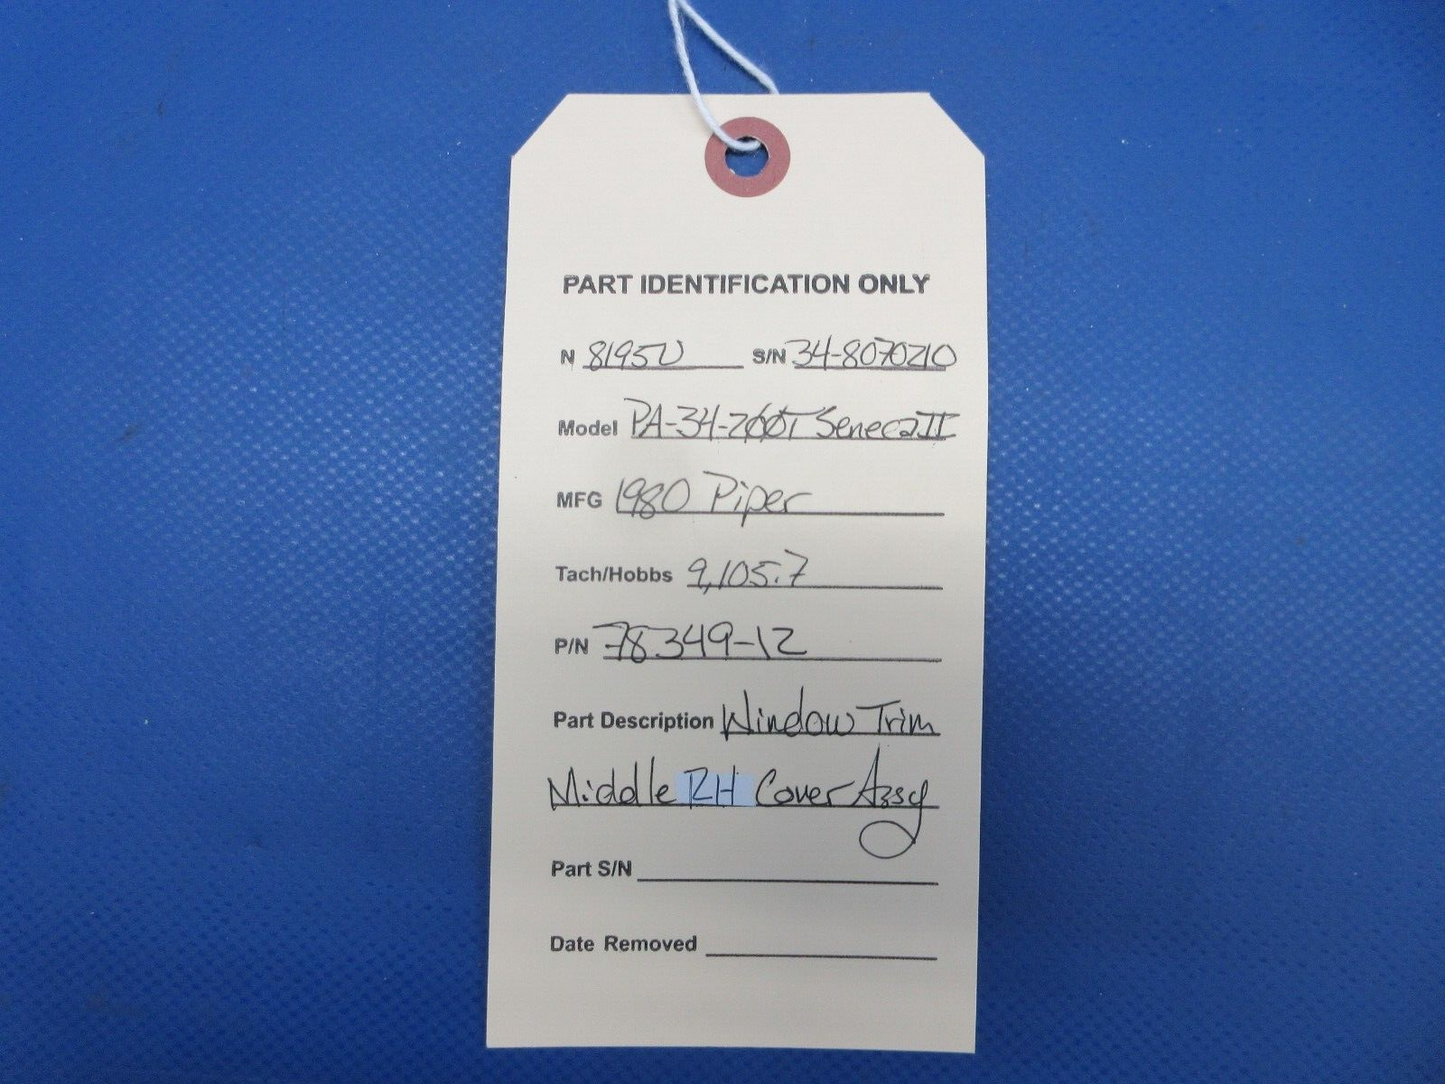 PART IDENTIFICATION ONLY
N 8195U S/N 34-8070210
Model PA-34-200T Seneca II
MFG 1980 Piper
Tach/Hobbs 9,105.7
P/N 78349-12
Part Description Window Trim
Middle RH Cover Assy
Part S/N
Date Removed